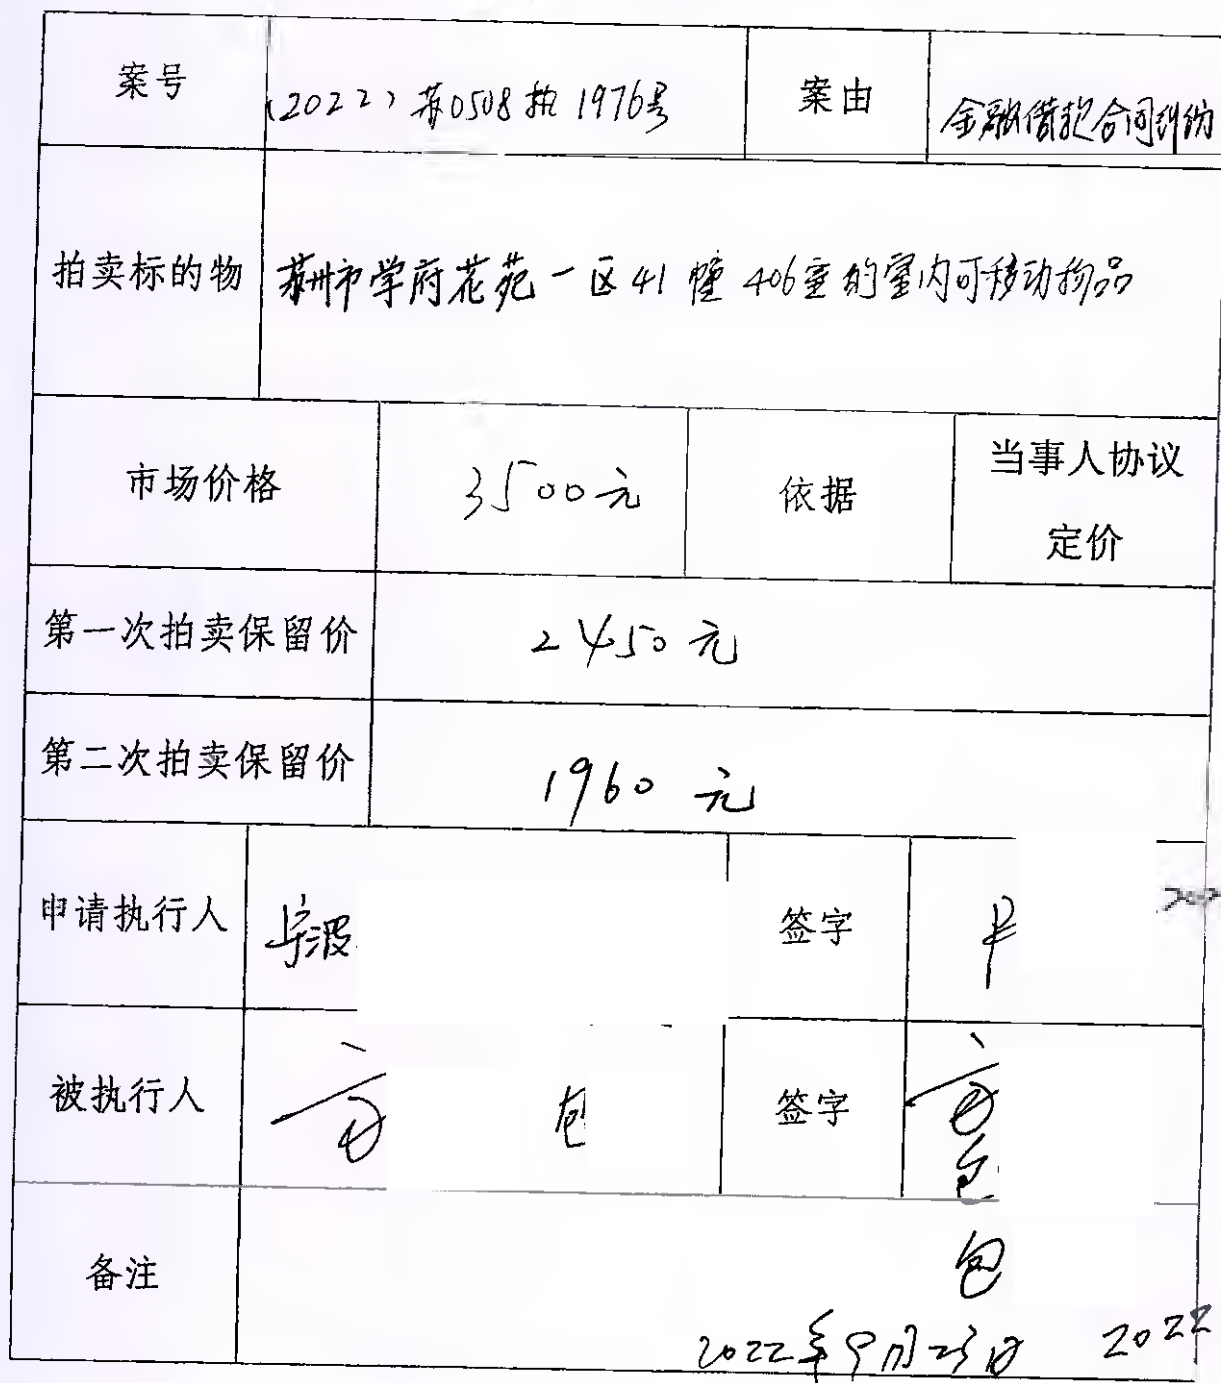 案号 (2022)苏0508执1976号 案由 金融借款合同纠纷
拍卖标的物 苏州市学府花苑一区41幢406室的室内可移动物品
市场价格 3500元 依据 当事人协议
定价
第一次拍卖保留价 2450元
第二次拍卖保留价 1960元
申请执行人 宁波 签字
被执行人 方 包 签字 方
包
备注 包
2022年9月23日 2022